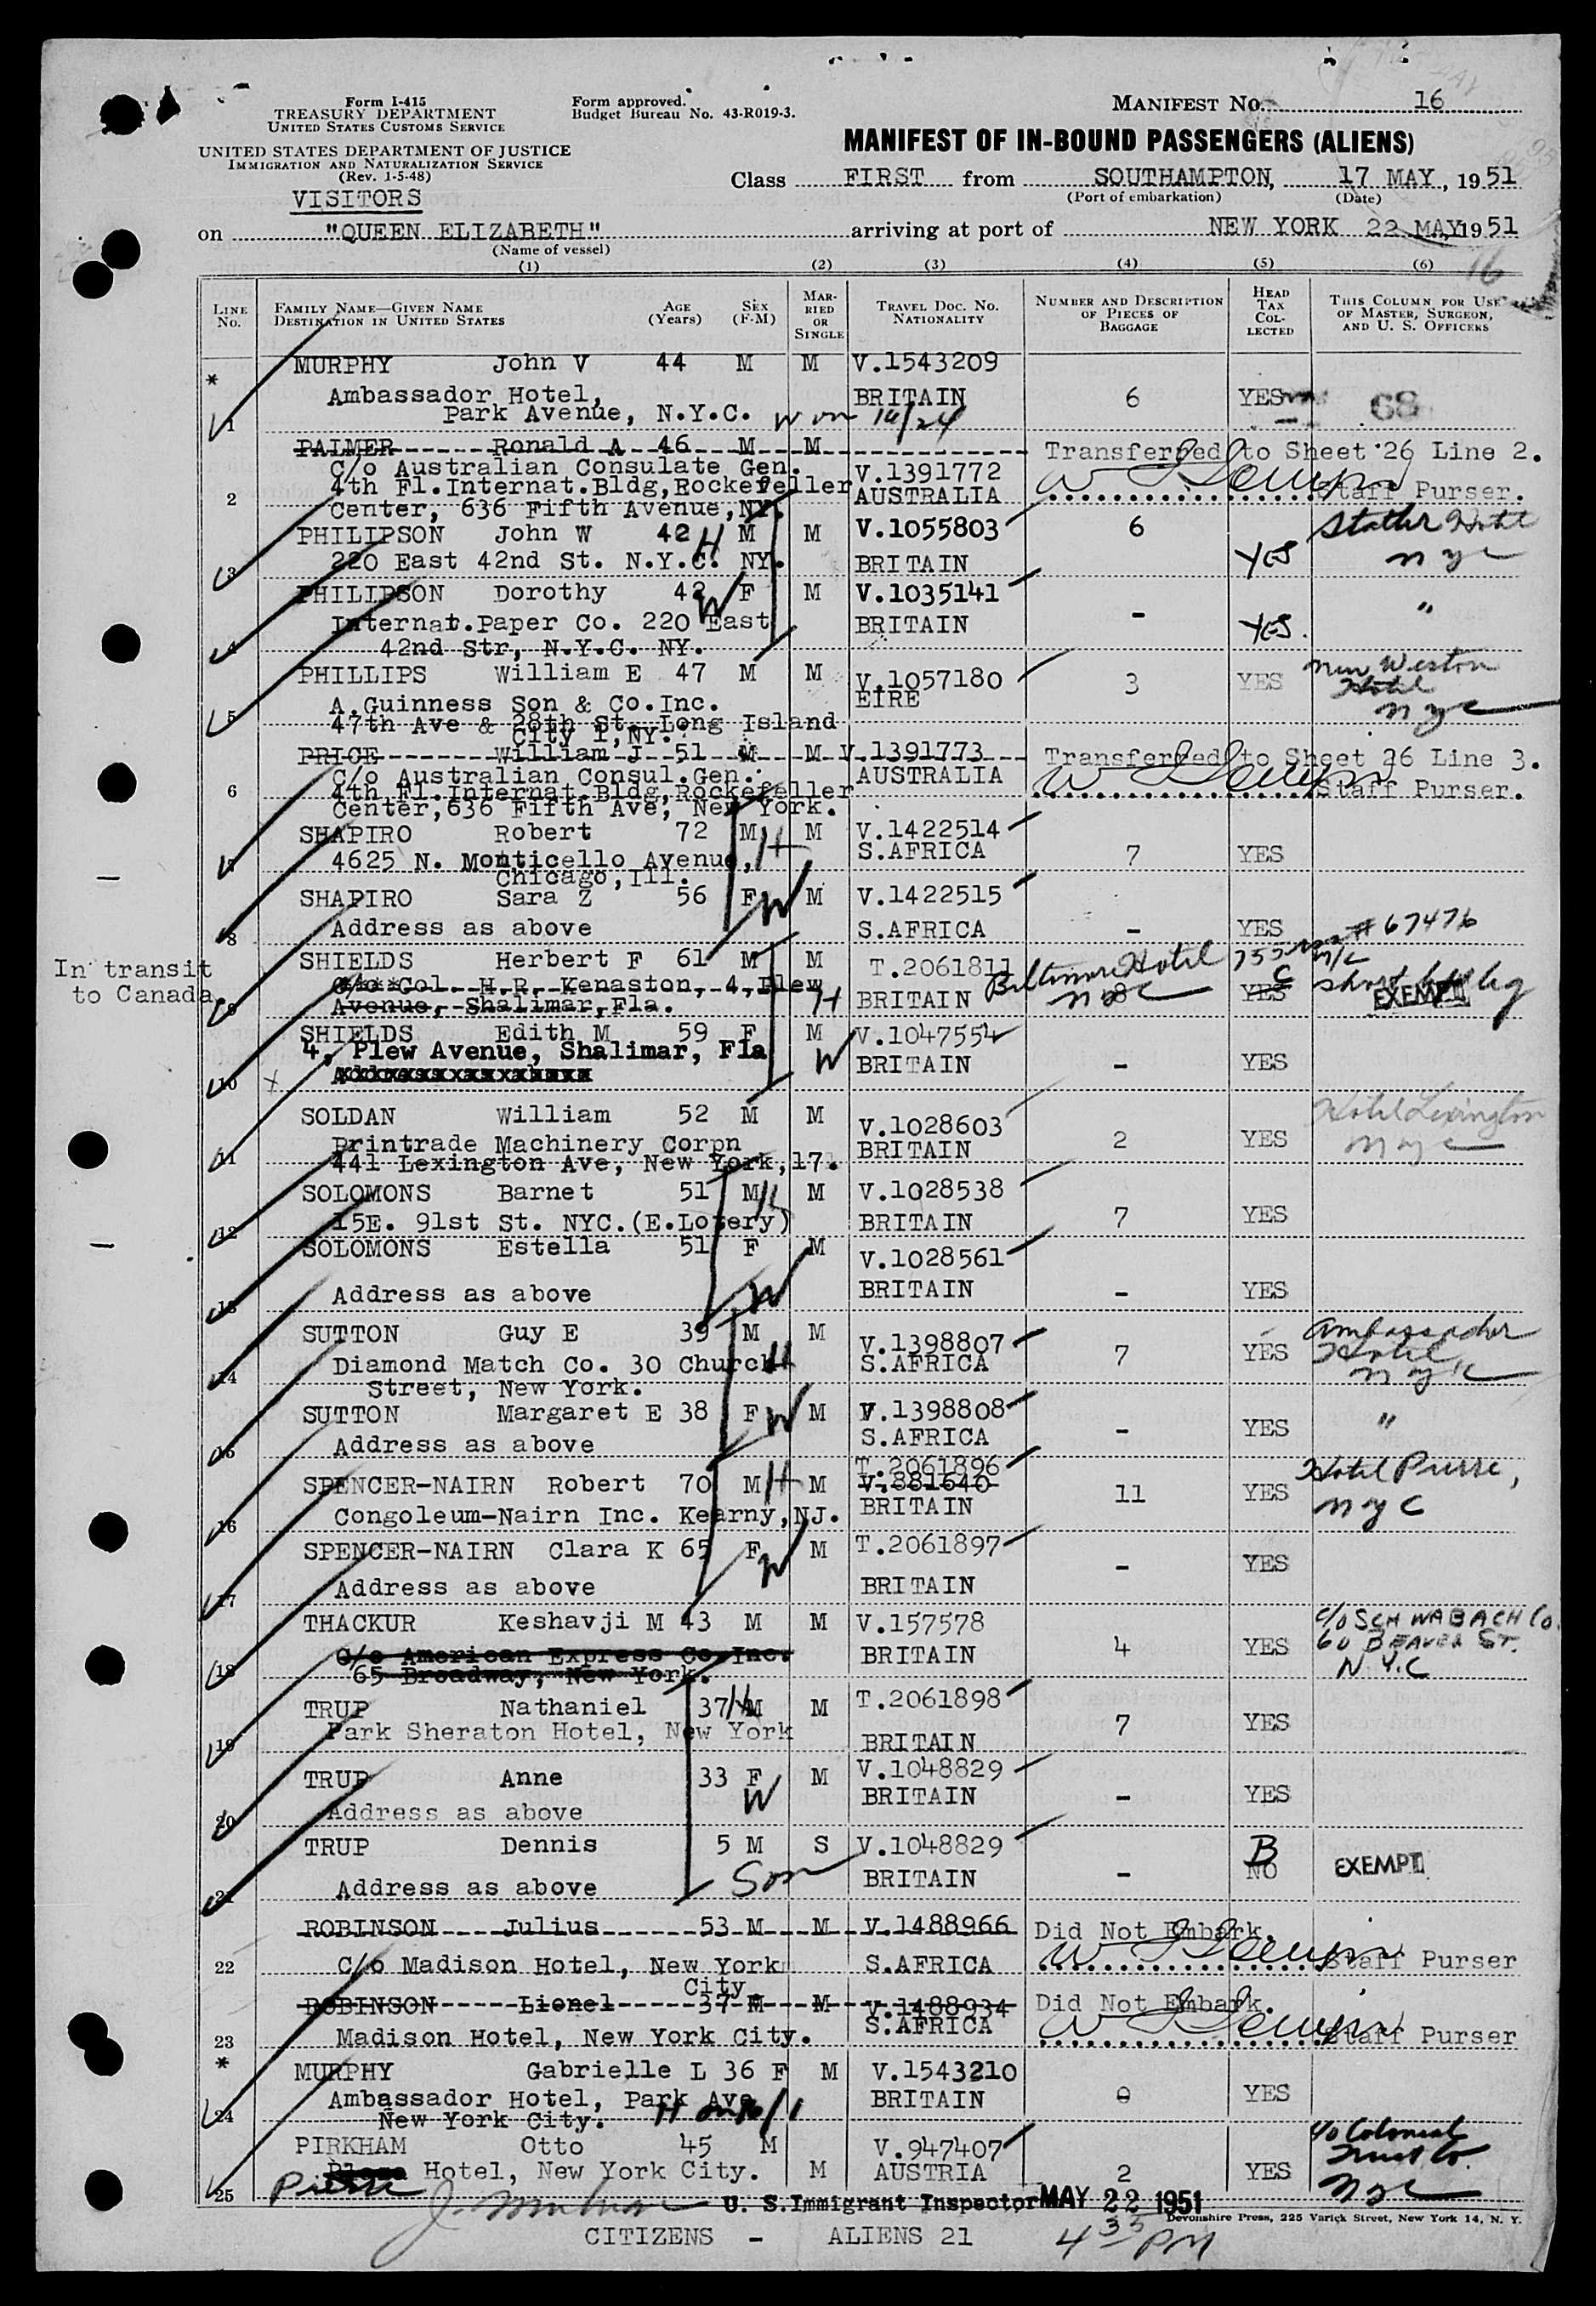 Form I-415
TREASURY DEPARTMENT
UNITED STATES CUSTOMS SERVICE
Form approved.
Budget Bureau No. 43-R019-3.
MANIFEST No. 16
UNITED STATES DEPARTMENT OF JUSTICE
IMMIGRATION AND NATURALIZATION SERVICE
(Rev. 1-5-48)
MANIFEST OF IN-BOUND PASSENGERS (ALIENS)
VISITORS
Class FIRST from SOUTHAMPTON, 17 MAY, 1951
(Port of embarkation) (Date)
on "QUEEN ELIZABETH" arriving at port of NEW YORK 22 MAY 1951
(Name of vessel)
16
(1) (2) (3) (4) (5) (6)
LINE No. FAMILY NAME—GIVEN NAME DESTINATION IN UNITED STATES AGE (Years) SEX (F-M) MARRIED OR SINGLE TRAVEL DOC. No. NATIONALITY NUMBER AND DESCRIPTION OF PIECES OF BAGGAGE HEAD TAX COLLECTED THIS COLUMN FOR USE OF MASTER, SURGEON, AND U. S. OFFICERS
* MURPHY John V 44 M M V.1543209
Ambassador Hotel, BRITAIN 6 YES 68
1 Park Avenue, N.Y.C. W on 16/24
PALMER Ronald A 46 M M Transferred to Sheet 26 Line 2.
C/o Australian Consulate Gen. V.1391772
2 4th Fl.Internat.Bldg,Rockefeller AUSTRALIA Staff Purser.
Center, 636 Fifth Avenue,NY.
PHILIPSON John W 42 H M M V.1055803 6 Statler Hotel
3 220 East 42nd St. N.Y.C. NY. BRITAIN YES NYC
PHILIPSON Dorothy 42 W F M V.1035141 - "
Internat.Paper Co. 220 East BRITAIN YES.
4 42nd Str, N.Y.C. NY.
PHILLIPS William E 47 M M V.1057180 3 YES New Weston
A.Guinness Son & Co.Inc. EIRE Hotel
5 47th Ave & 28th St. Long Island NYC
City 1,NY.
PRICE William J 51 M M V.1391773 Transferred to Sheet 26 Line 3.
C/o Australian Consul.Gen. AUSTRALIA
6 4th Fl.Internat.Bldg,Rockefeller Staff Purser.
Center,636 Fifth Ave, New York.
SHAPIRO Robert 72 M H M V.1422514
7 4625 N. Monticello Avenue, S.AFRICA 7 YES
Chicago,Ill.
SHAPIRO Sara Z 56 F W M V.1422515
8 Address as above S.AFRICA - YES
# 67476
In transit
to Canada
SHIELDS Herbert F 61 M M T.2061811 Biltmore Hotel
C/o Col. H.R. Kenaston, 4,Plew NYC
9 Avenue, Shalimar,Fla. H BRITAIN 8 YES C EXEMPT
SHIELDS Edith M 59 F M V.1047554
4, Plew Avenue, Shalimar, Fla W BRITAIN - YES
10
SOLDAN William 52 M M V.1028603 2 YES Hotel Lexington
Printrade Machinery Corpn BRITAIN NYC
11 441 Lexington Ave, New York,17.
SOLOMONS Barnet 51 M H M V.1028538
12 15E. 91st St. NYC.(E.Lotery) BRITAIN 7 YES
SOLOMONS Estella 51 F M V.1028561
13 Address as above W BRITAIN - YES
SUTTON Guy E 39 M M V.1398807 Ambassador
14 Diamond Match Co. 30 Church H S.AFRICA 7 YES Hotel
Street, New York. NYC
SUTTON Margaret E 38 F W M V.1398808 "
15 Address as above S.AFRICA - YES
T.2061896
SPENCER-NAIRN Robert 70 M H M V.881640 11 YES Hotel Pierre,
16 Congoleum-Nairn Inc. Kearny,NJ. BRITAIN NYC
SPENCER-NAIRN Clara K 65 F W M T.2061897
17 Address as above BRITAIN - YES
THACKUR Keshavji M 43 M M V.157578 c/o SCHWABACH Co.
C/o American Express Co.Inc. BRITAIN 4 YES 60 BEAVER ST.
18 65 Broadway, New York. N.Y.C
TRUP Nathaniel 37 H M M T.2061898
19 Park Sheraton Hotel, New York BRITAIN 7 YES
TRUP Anne 33 F M V.1048829
20 Address as above W BRITAIN - YES
TRUP Dennis 5 M S V.1048829 B
21 Address as above Son BRITAIN - NO EXEMPT
ROBINSON Julius 53 M M V.1488966 Did Not Embark.
22 C/o Madison Hotel, New York S.AFRICA Staff Purser
City
ROBINSON Lionel 37 M M V.1488934 Did Not Embark.
23 Madison Hotel, New York City. S.AFRICA Staff Purser
* MURPHY Gabrielle L 36 F M V.1543210
Ambassador Hotel, Park Ave BRITAIN 0 YES
24 New York City. H on 16/1
PIRKHAM Otto 45 M V.947407 c/o Colonial
Plaza Hotel, New York City. M AUSTRIA 2 YES Trust Co.
25 Pierre NYC
U. S. Immigrant Inspector MAY 22 1951
Devonshire Press, 225 Varick Street, New York 14, N. Y.
CITIZENS - ALIENS 21 4 35 PM